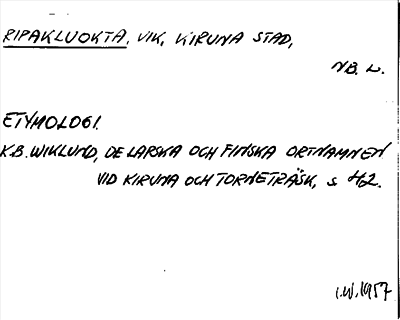 RIPAKLUOKTA, VIK, KIRUNA STAD,
NB. L.
ETYMOLOGI.
K.B. WIKLUND, DE LAPSKA OCH FINSKA ORTNAMNEN
VID KIRUNA OCH TORNETRÄSK, s 42.
I.W. 1957